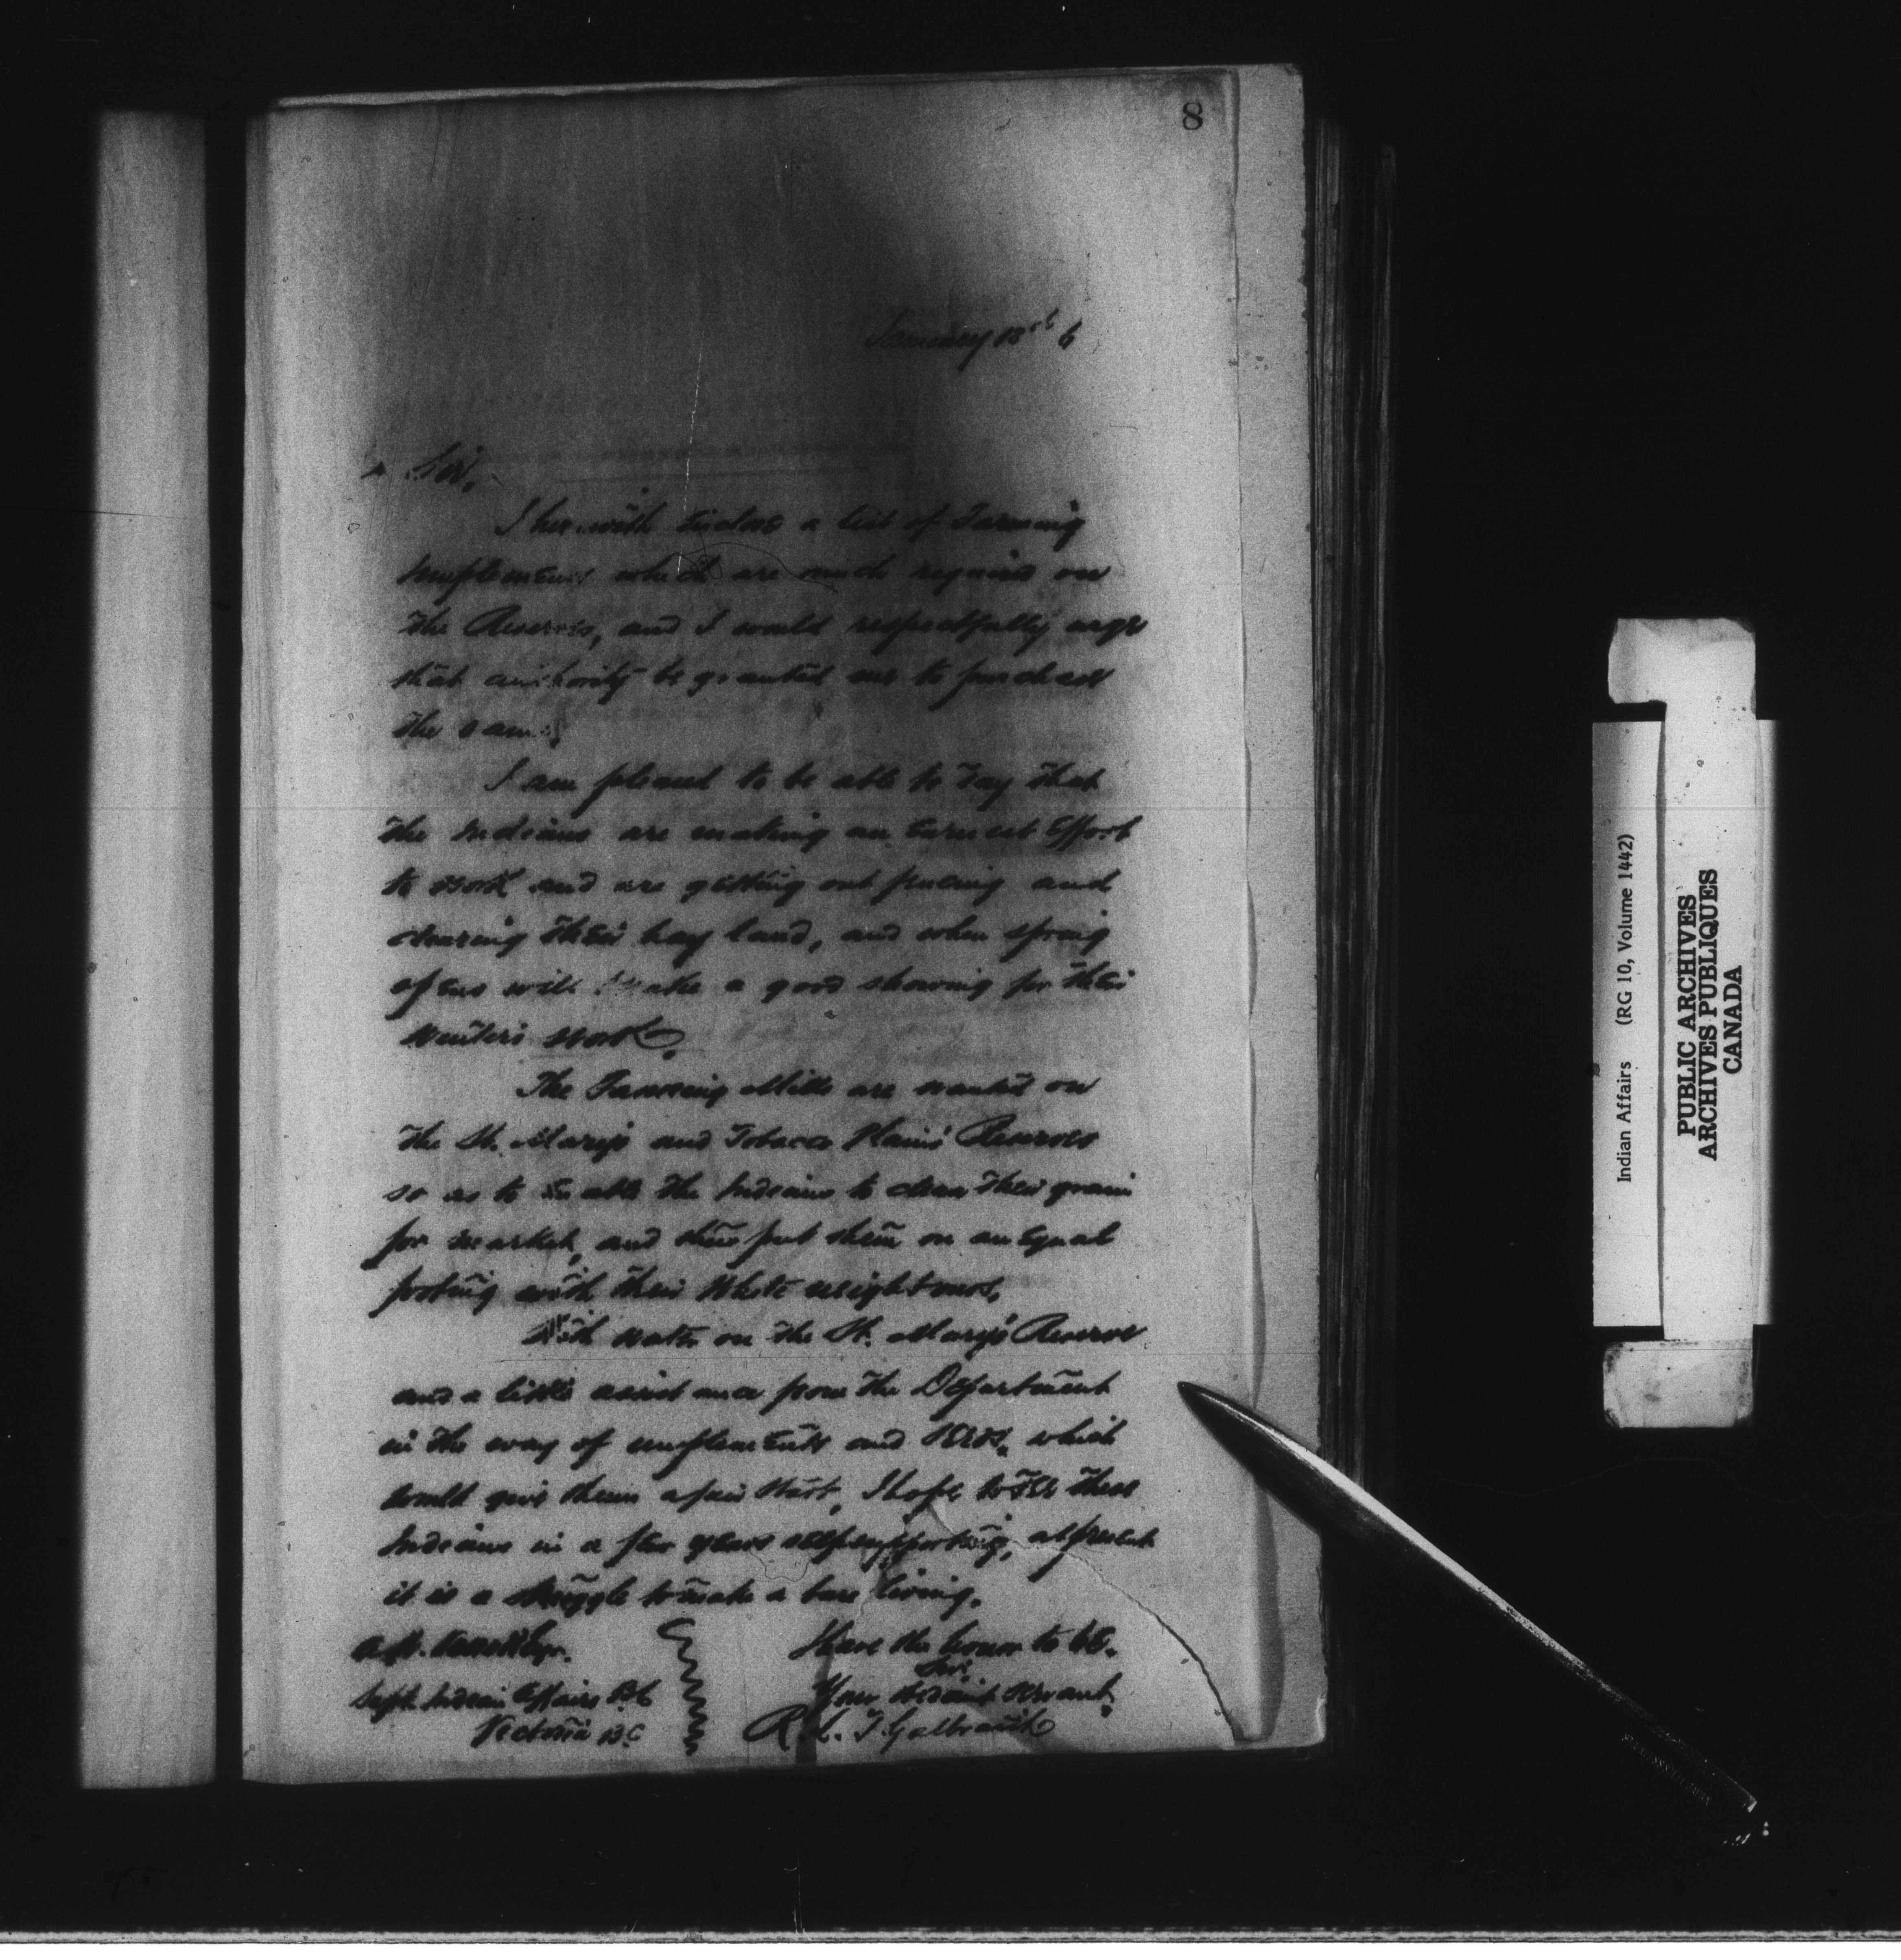 8
January 13th 6
Sir,
I herewith Enclose a list of Farming
implements which are much required on
the Reserves, and I would respectfully urge
that authority be granted me to purchase
the same.
I am pleased to be able to say that
the Indians are making an Earnest Effort
to work and are getting out fencing and
clearing their hay land, and when spring
opens will make a good showing for their
winters work.
The Fanning Mills are wanted on
the St. Mary's and Tobacco Plains' Reserves
so as to Enable the Indians to clean their grain
for market, and thus put them on an Equal
footing with their White neighbours.
With water on the St. Mary's Reserve
and a little assistance from the Department
in the way of implements and seeds, which
would give them a fair start, I hope to see these
Indians in a few years self supporting, at present
it is a struggle to make a bare living.
I have the honour to be.
Sir.
Your obedient servant,
R. L. T. Galbraith
Supt. Indian Affairs B.C
Victoria B.C
Indian Affairs (RG 10, Volume 1442)
PUBLIC ARCHIVES
ARCHIVES PUBLIQUES
CANADA